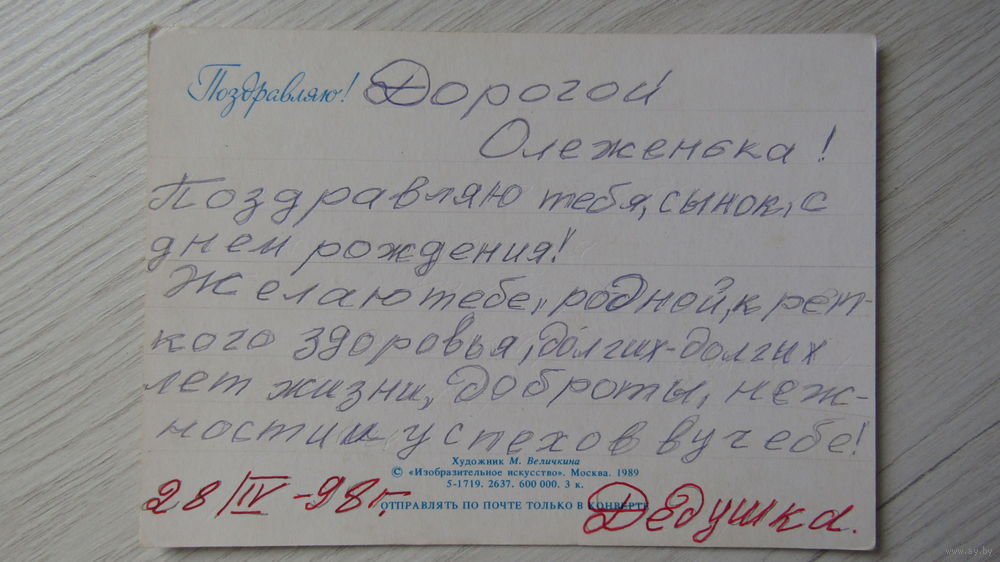 Поздравляю! Дорогой
Олеженька!
Поздравляю тебя, сынок, с
днем рождения!
Желаю тебе, родной, креп-
кого здоровья, долгих-долгих
лет жизни, доброты, неж-
ности и успехов в учебе!
Художник М. Величкина
© «Изобразительное искусство». Москва. 1989
5-1719. 2637. 600 000. 3 к.
ОТПРАВЛЯТЬ ПО ПОЧТЕ ТОЛЬКО В КОНВЕРТЕ
28/IV-98г. Дедушка.
www.ay.by